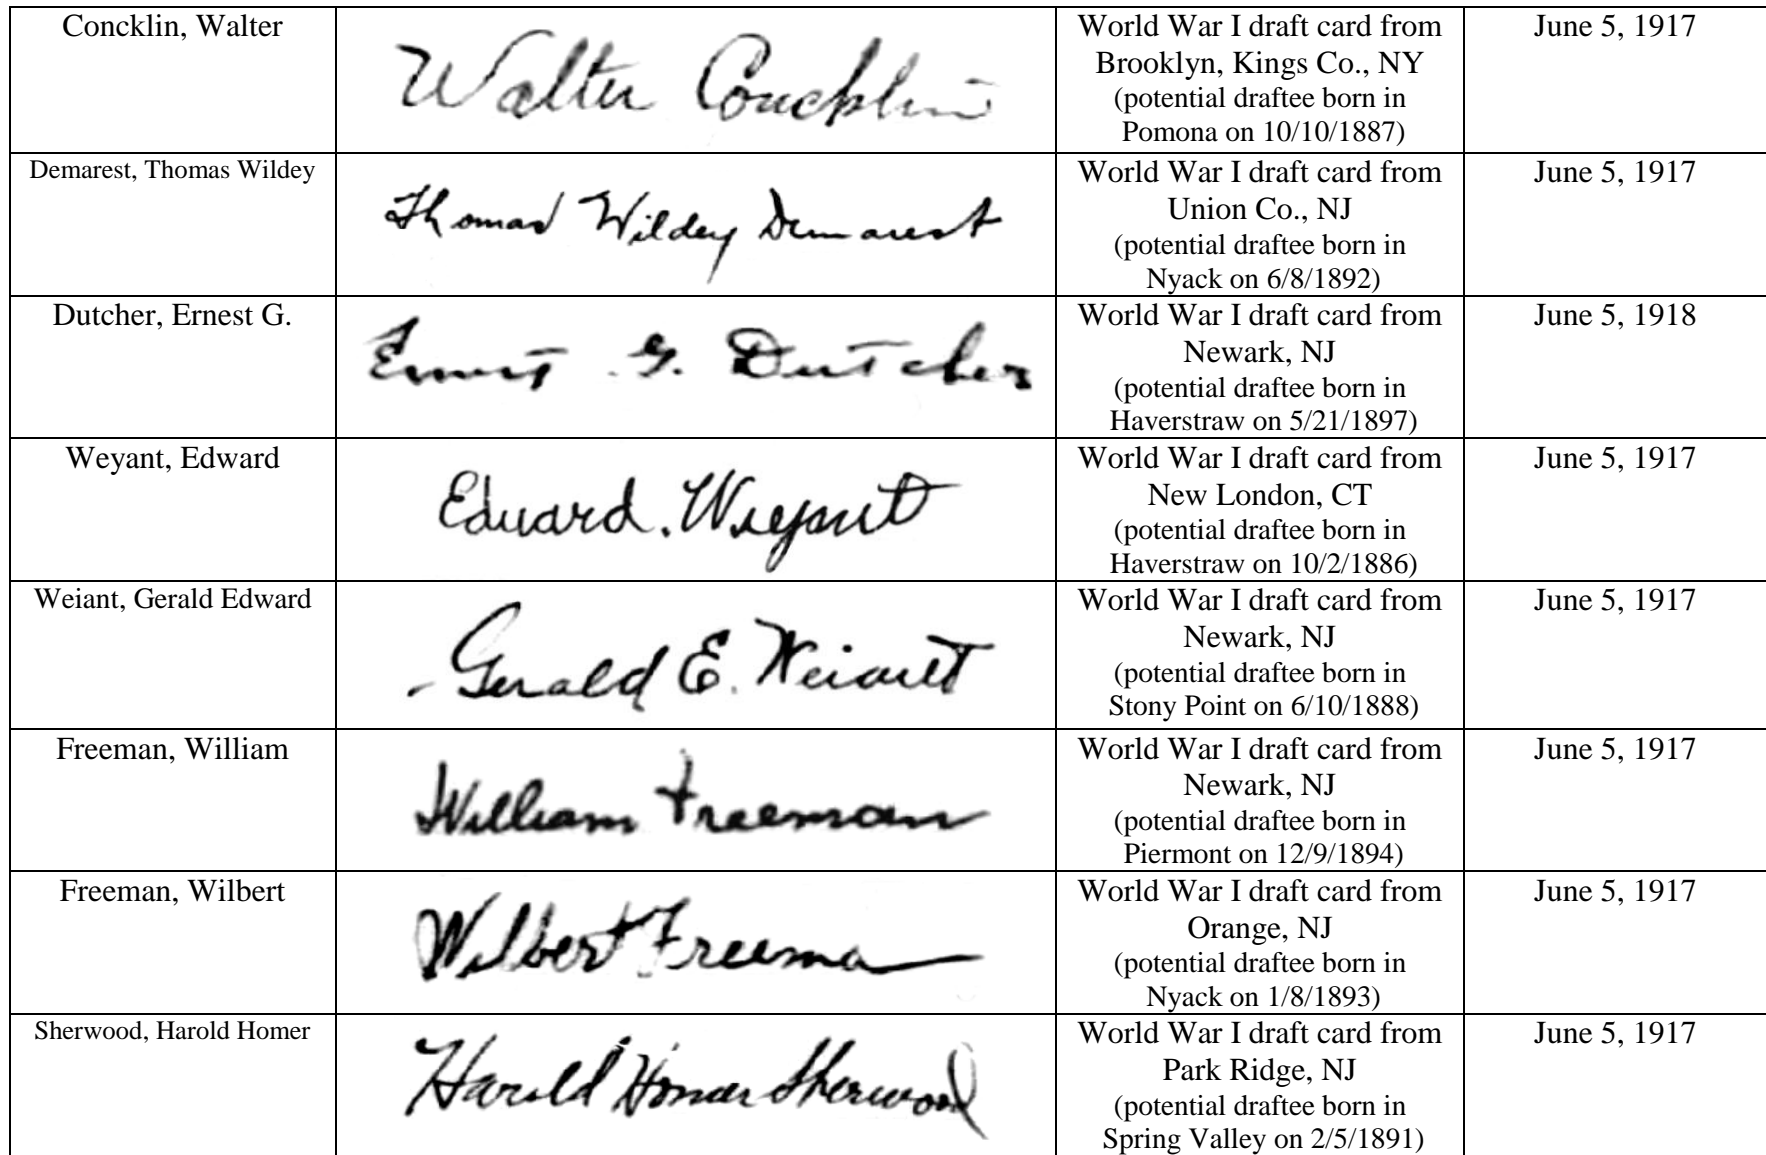 Concklin, Walter
Walter Concklin
World War I draft card from
Brooklyn, Kings Co., NY
(potential draftee born in
Pomona on 10/10/1887)
June 5, 1917
Demarest, Thomas Wildey
Thomas Wildey Demarest
World War I draft card from
Union Co., NJ
(potential draftee born in
Nyack on 6/8/1892)
June 5, 1917
Dutcher, Ernest G.
Ernest G. Dutcher
World War I draft card from
Newark, NJ
(potential draftee born in
Haverstraw on 5/21/1897)
June 5, 1918
Weyant, Edward
Edward. Weyant
World War I draft card from
New London, CT
(potential draftee born in
Haverstraw on 10/2/1886)
June 5, 1917
Weiant, Gerald Edward
Gerald E. Weiant
World War I draft card from
Newark, NJ
(potential draftee born in
Stony Point on 6/10/1888)
June 5, 1917
Freeman, William
William Freeman
World War I draft card from
Newark, NJ
(potential draftee born in
Piermont on 12/9/1894)
June 5, 1917
Freeman, Wilbert
Wilbert Freeman
World War I draft card from
Orange, NJ
(potential draftee born in
Nyack on 1/8/1893)
June 5, 1917
Sherwood, Harold Homer
Harold Homer Sherwood
World War I draft card from
Park Ridge, NJ
(potential draftee born in
Spring Valley on 2/5/1891)
June 5, 1917